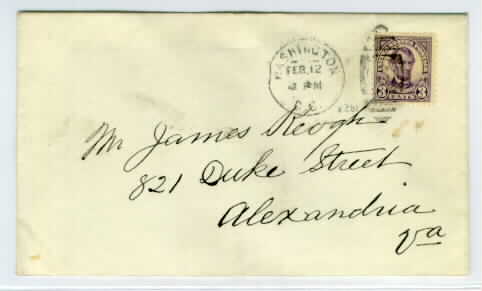 WASHINGTON
FEB. 12
D.C.
3 3
CENTS
Mr James Keogh
821 Duke Street
Alexandria
Va